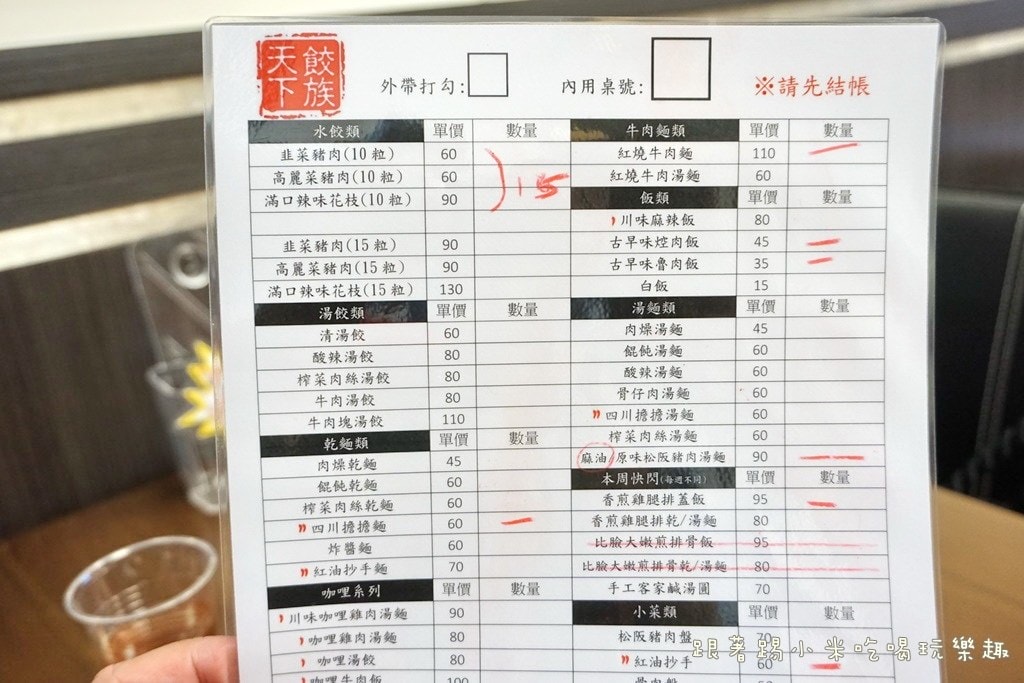 餃族天下
外帶打勾: 內用桌號: ※請先結帳
水餃類 單價 數量
韭菜豬肉(10粒) 60
高麗菜豬肉(10粒) 60
滿口辣味花枝(10粒) 90
15
韭菜豬肉(15粒) 90
高麗菜豬肉(15粒) 90
滿口辣味花枝(15粒) 130
湯餃類 單價 數量
清湯餃 60
酸辣湯餃 80
榨菜肉絲湯餃 80
牛肉湯餃 80
牛肉塊湯餃 110
乾麵類 單價 數量
肉燥乾麵 45
餛飩乾麵 60
榨菜肉絲乾麵 60
四川擔擔麵 60
炸醬麵 60
紅油抄手麵 70
咖哩系列 單價 數量
川味咖哩雞肉湯麵 90
咖哩雞肉湯麵 80
咖哩湯餃 80
咖哩牛肉飯 100
牛肉麵類 單價 數量
紅燒牛肉麵 110
紅燒牛肉湯麵 60
飯類 單價 數量
川味麻辣飯 80
古早味焢肉飯 45
古早味魯肉飯 35
白飯 15
湯麵類 單價 數量
肉燥湯麵 45
餛飩湯麵 60
酸辣湯麵 60
骨仔肉湯麵 60
四川擔擔湯麵 60
榨菜肉絲湯麵 60
麻油/原味松阪豬肉湯麵 90
本周快閃(每週不同) 單價 數量
香煎雞腿排蓋飯 95
香煎雞腿排乾/湯麵 80
比臉大嫩煎排骨飯 95
比臉大嫩煎排骨乾/湯麵 80
手工客家鹹湯圓 70
小菜類 單價 數量
松阪豬肉盤 70
紅油抄手 60
骨肉盤
跟著踢小米吃喝玩樂趣